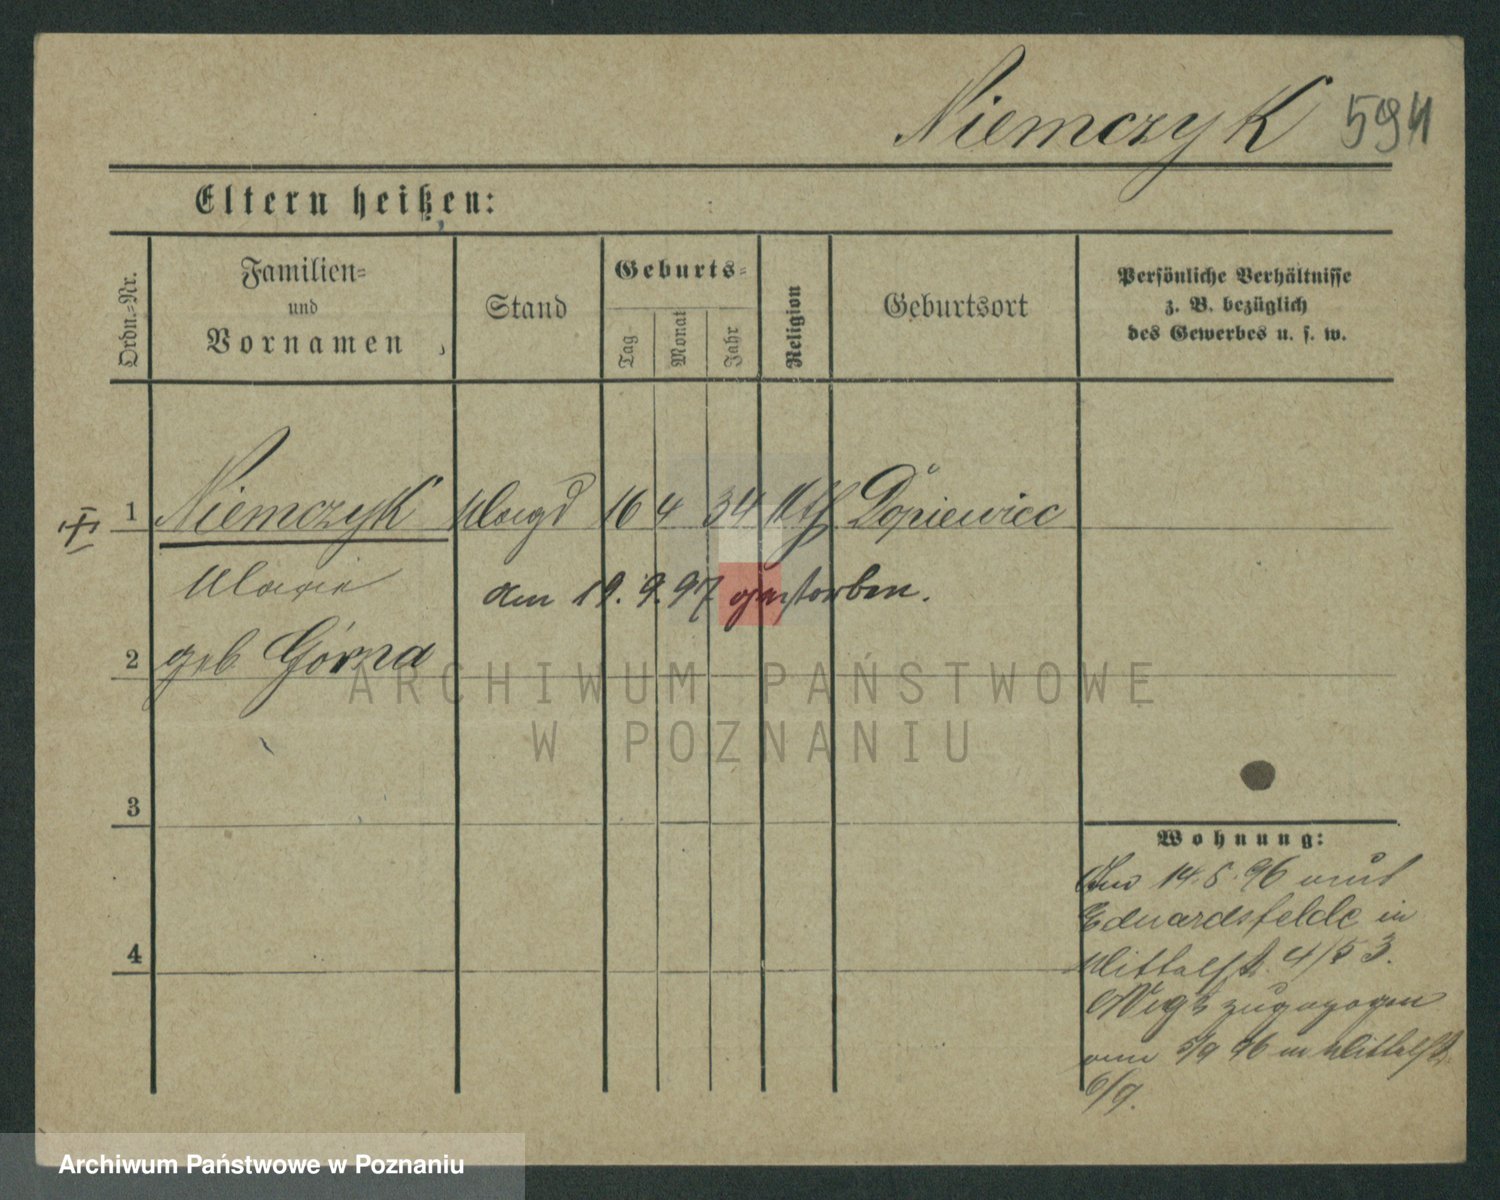 Niemczyk 594
Eltern heißen:
Ordn.=Nr.
Familien=
und
Vornamen
Stand
Geburts=
Tag
Monat
Jahr
Religion
Geburtsort
Persönliche Verhältnisse
z. B. bezüglich
des Gewerbes u. s. w.
1 Niemczyk Magd 16 4 34 kth Dopiewiec
Marie
den 19. 9. 97 gestorben.
2 geb Górna
ARCHIWUM PAŃSTWOWE
W POZNANIU
3
Wohnung:
14. 5. 96 aus
Eduardsfelde in
4
Mittelst. 4/53.
zugezogen
5/9 96 in Mittelst
6/9.
Archiwum Państwowe w Poznaniu